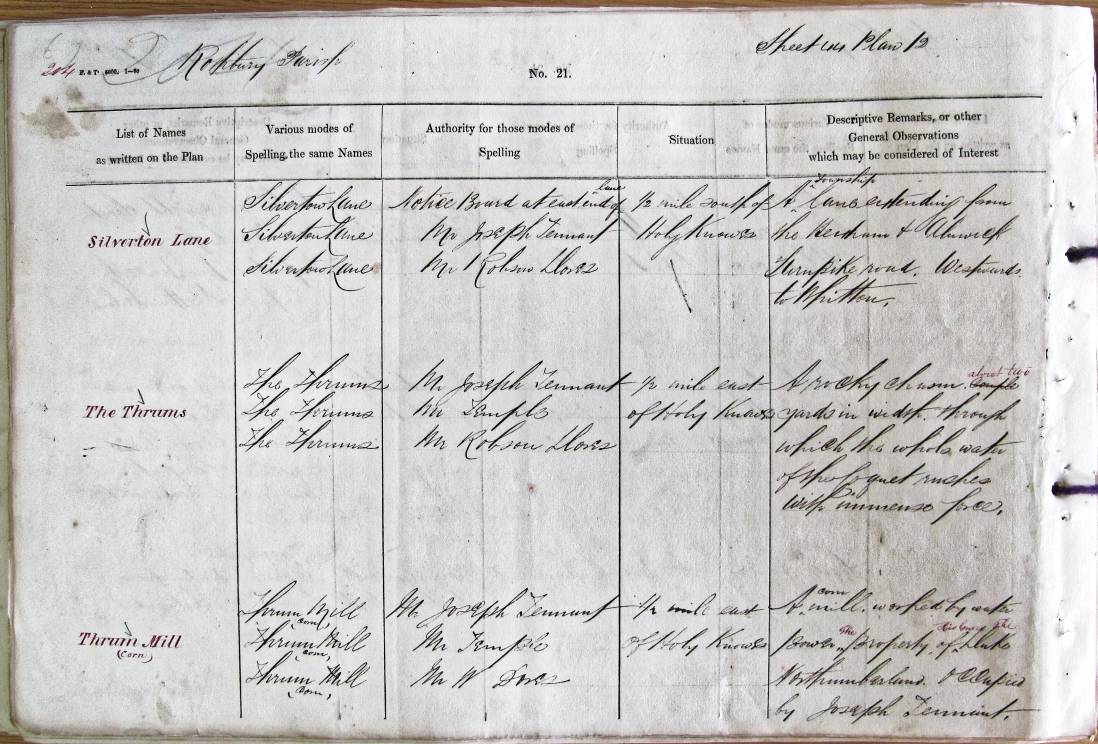 204
Rothbury Parish
Sheet 44 Plan 12
No. 21.
List of Names
as written on the Plan
Various modes of
Spelling, the same Names
Authority for those modes of
Spelling
Situation
Descriptive Remarks, or other
General Observations
which may be considered of Interest
Silverton Lane
Silverton Lane
Silverton Lane
Silverton Lane
Notice Board at east end of lane
Mr Joseph Tennant
Mr Robson
1/2 mile south of
Holy Knowes
A township lane extending from
the Hexham & Alnwick
Turnpike road. Westwards
to Whitton.
The Thrums
The Thrums
The Thrums
The Thrums
Mr Joseph Tennant
Mr Temple
Mr Robson
1/2 mile east
of Holy Knowes
A rocky chasm. couple about two
yards in width through
which the whole water
of the Coquet rushes
with immense force.
Thrum Mill
(Corn)
Thrum Mill
(Corn)
Thrum Mill
(Corn)
Thrum Mill
(Corn)
Mr Joseph Tennant
Mr Temple
Mr W
1/2 mile east
of Holy Knowes
A corn mill. worked by water
power. The Property of His Grace the Duke
Northumberland. Occupied
by Joseph Tennant.